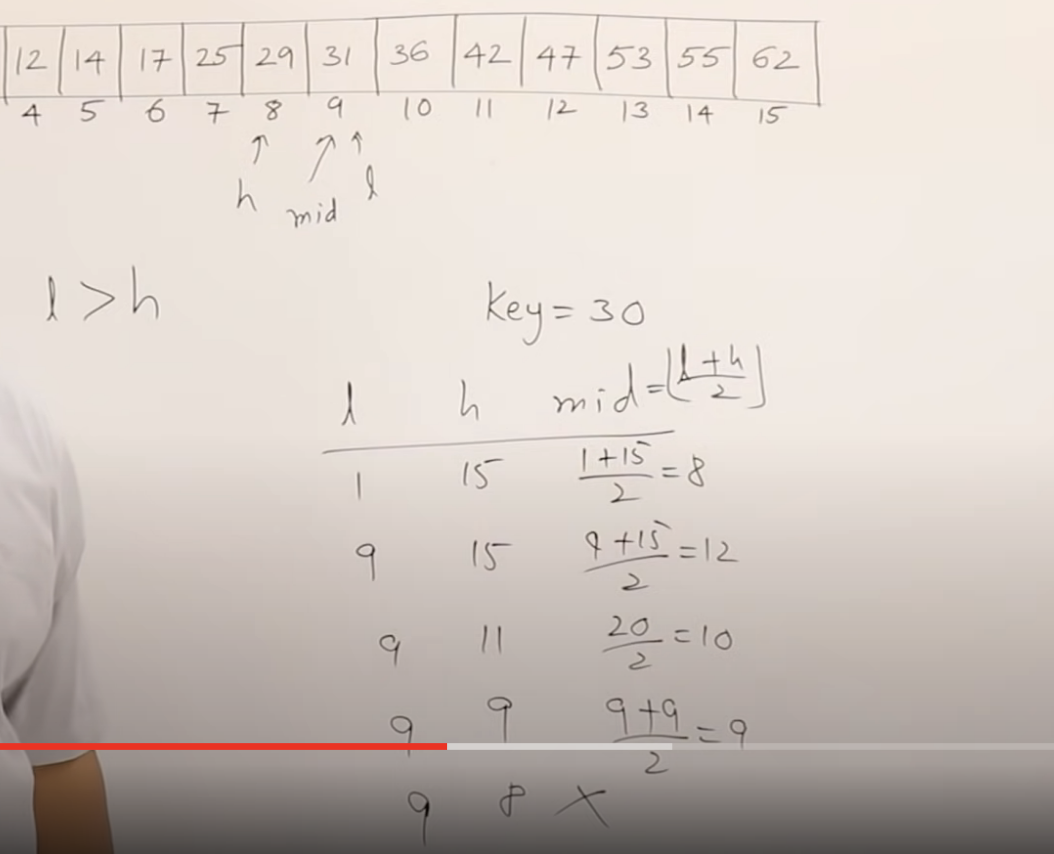 12 14 17 25 29 31 36 42 47 53 55 62
4 5 6 7 8 9 10 11 12 13 14 15
h mid l
l > h
Key = 30
l h mid = ⌊l+h/2⌋
1 15 1+15/2 = 8
9 15 9+15/2 = 12
9 11 20/2 = 10
9 9 9+9/2 = 9
9 8 ×